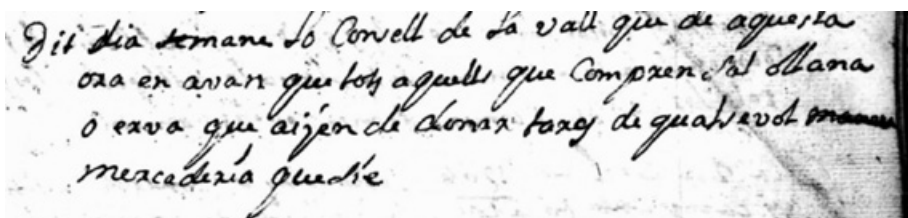 Dit dia semane lo Consell de la vall que de aquesta
ora en avan que tots aquells que Compren sal ollana
o erva que aijen de donar fares de qualsevol
mercaderia que sie